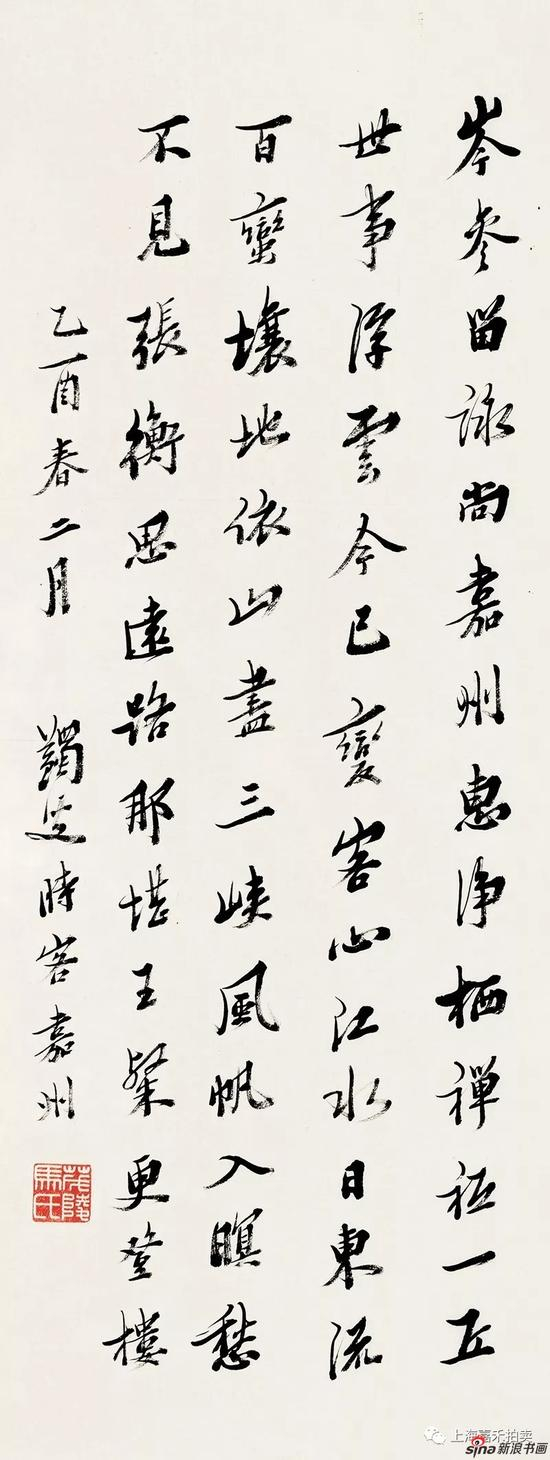 岑参留詠尚嘉州惠净栖禅祇一丘
世事浮雲今已變客心江水日東流
百蠻壤地依山盡三峡風帆入暝愁
不見張衡思遠路那堪王粲更登樓
乙酉春二月 蠲叟時客嘉州
茂陵馬氏
上海嘉禾拍卖
sina新浪书画